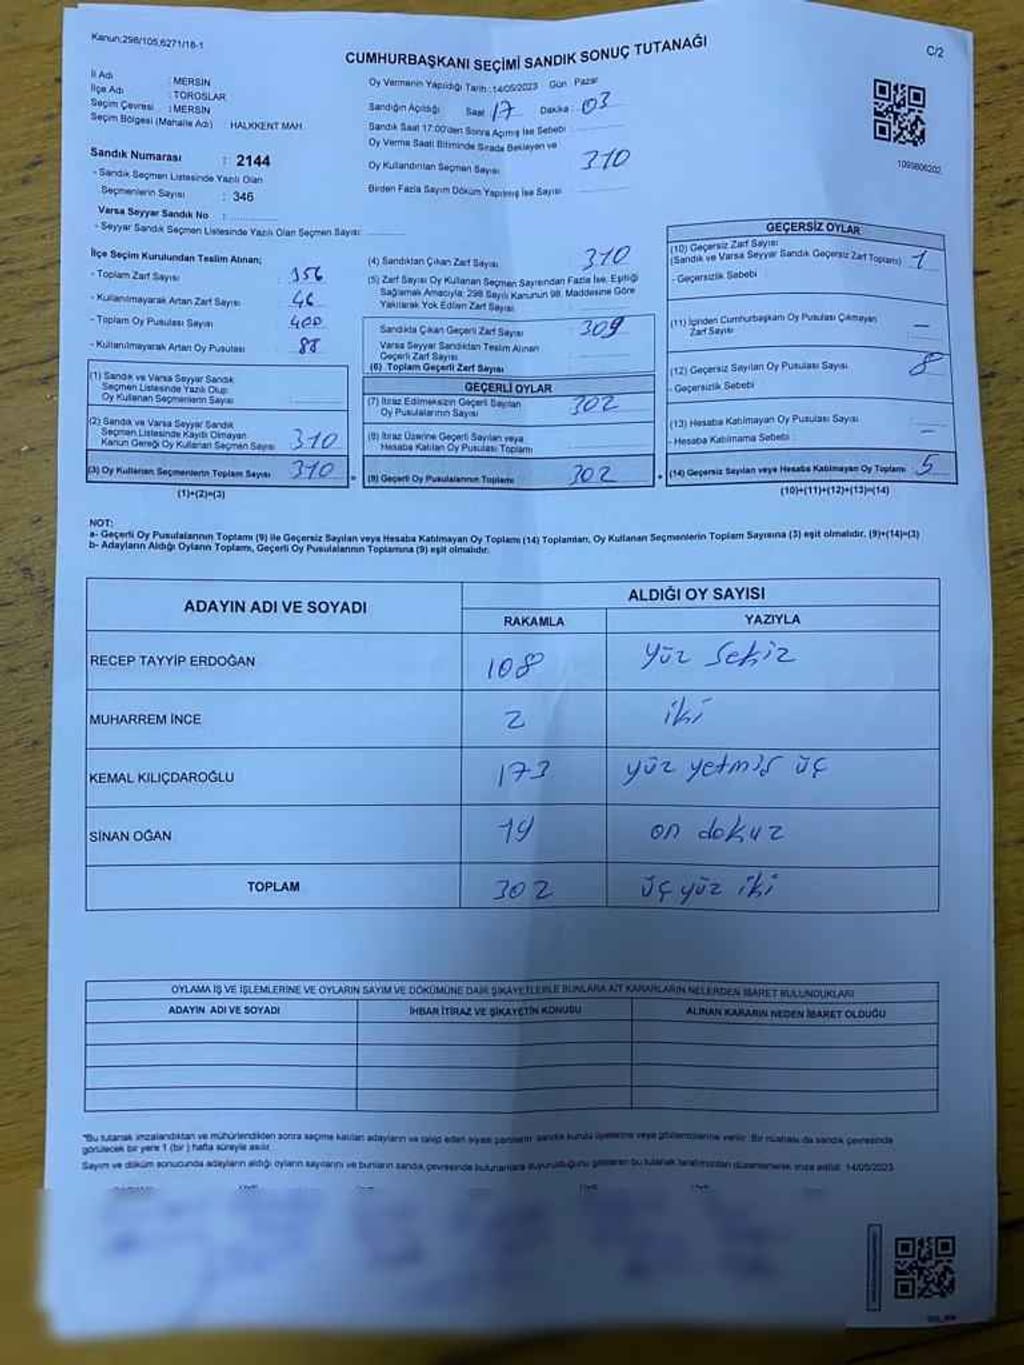 Kanun:298/105,6271/18-1
C/2
CUMHURBAŞKANI SEÇİMİ SANDIK SONUÇ TUTANAĞI
İl Adı : MERSİN
İlçe Adı : TOROSLAR
Seçim Çevresi : MERSİN
Seçim Bölgesi (Mahalle Adı) : HALKKENT MAH.
Sandık Numarası : 2144
- Sandık Seçmen Listesinde Yazılı Olan
Seçmenlerin Sayısı : 346
Varsa Seyyar Sandık No :
- Seyyar Sandık Seçmen Listesinde Yazılı Olan Seçmen Sayısı:
Oy Vermenin Yapıldığı Tarih :14/05/2023 Gün : Pazar
Sandığın Açıldığı Saat 17 Dakika : 03
Sandık Saat 17:00'den Sonra Açılmış İse Sebebi
Oy Verme Saati Bitiminde Sırada Bekleyen ve
Oy Kullandırılan Seçmen Sayısı 310
Birden Fazla Sayım Döküm Yapılmış İse Sayısı
1095606202
İlçe Seçim Kurulundan Teslim Alınan;
- Toplam Zarf Sayısı : 356
- Kullanılmayarak Artan Zarf Sayısı : 46
- Toplam Oy Pusulası Sayısı : 400
- Kullanılmayarak Artan Oy Pusulası : 88
(1) Sandık ve Varsa Seyyar Sandık
Seçmen Listesinde Yazılı Olup
Oy Kullanan Seçmenlerin Sayısı
(2) Sandık ve Varsa Seyyar Sandık
Seçmen Listesinde Kayıtlı Olmayan
Kanun Gereği Oy Kullanan Seçmen Sayısı 310
(3) Oy Kullanan Seçmenlerin Toplam Sayısı 310
(1)+(2)=(3)
(4) Sandıktan Çıkan Zarf Sayısı 310
(5) Zarf Sayısı Oy Kullanan Seçmen Sayısından Fazla İse, Eşitliği
Sağlamak Amacıyla; 298 Sayılı Kanunun 98. Maddesine Göre
Yakılarak Yok Edilen Zarf Sayısı
Sandıkta Çıkan Geçerli Zarf Sayısı 309
Varsa Seyyar Sandıktan Teslim Alınan
Geçerli Zarf Sayısı
(6) Toplam Geçerli Zarf Sayısı
GEÇERLİ OYLAR
(7) İtiraz Edilmeksizin Geçerli Sayılan
Oy Pusulalarının Sayısı 302
(8) İtiraz Üzerine Geçerli Sayılan veya
Hesaba Katılan Oy Pusulası Toplamı
(9) Geçerli Oy Pusulalarının Toplamı 302
GEÇERSİZ OYLAR
(10) Geçersiz Zarf Sayısı
(Sandık ve Varsa Seyyar Sandık Geçersiz Zarf Toplamı) 1
- Geçersizlik Sebebi
(11) İçinden Cumhurbaşkanı Oy Pusulası Çıkmayan
Zarf Sayısı —
(12) Geçersiz Sayılan Oy Pusulası Sayısı 8
- Geçersizlik Sebebi
(13) Hesaba Katılmayan Oy Pusulası Sayısı
- Hesaba Katılmama Sebebi —
(14) Geçersiz Sayılan veya Hesaba Katılmayan Oy Toplamı 5
(10)+(11)+(12)+(13)=(14)
NOT:
a- Geçerli Oy Pusulalarının Toplamı (9) ile Geçersiz Sayılan veya Hesaba Katılmayan Oy Toplamı (14) Toplamları, Oy Kullanan Seçmenlerin Toplam Sayısına (3) eşit olmalıdır. (9)+(14)=(3)
b- Adayların Aldığı Oyların Toplamı, Geçerli Oy Pusulalarının Toplamına (9) eşit olmalıdır.
ADAYIN ADI VE SOYADI
ALDIĞI OY SAYISI
RAKAMLA YAZIYLA
RECEP TAYYİP ERDOĞAN 108 yüz sekiz
MUHARREM İNCE 2 iki
KEMAL KILIÇDAROĞLU 173 yüz yetmiş üç
SİNAN OĞAN 19 on dokuz
TOPLAM 302 üç yüz iki
OYLAMA İŞ VE İŞLEMLERİNE VE OYLARIN SAYIM VE DÖKÜMÜNE DAİR ŞİKAYETLERLE BUNLARA AİT KARARLARIN NELERDEN İBARET BULUNDUKLARI
ADAYIN ADI VE SOYADI İHBAR İTİRAZ VE ŞİKAYETİN KONUSU ALINAN KARARIN NEDEN İBARET OLDUĞU
*Bu tutanak imzalandıktan ve mühürlendikten sonra seçime katılan adayların ve talep eden siyasi partilerin sandık kurulu üyelerine veya gözlemcilerine verilir. Bir nüshası da sandık çevresinde
görülecek bir yere 1 (bir) hafta süreyle asılır.
Sayım ve döküm sonucunda adayların aldığı oyların sayılarını ve bunların sandık çevresinde bulunanlara duyurulduğunu gösteren bu tutanak tarafımızdan düzenlenerek imza edildi. 14/05/2023